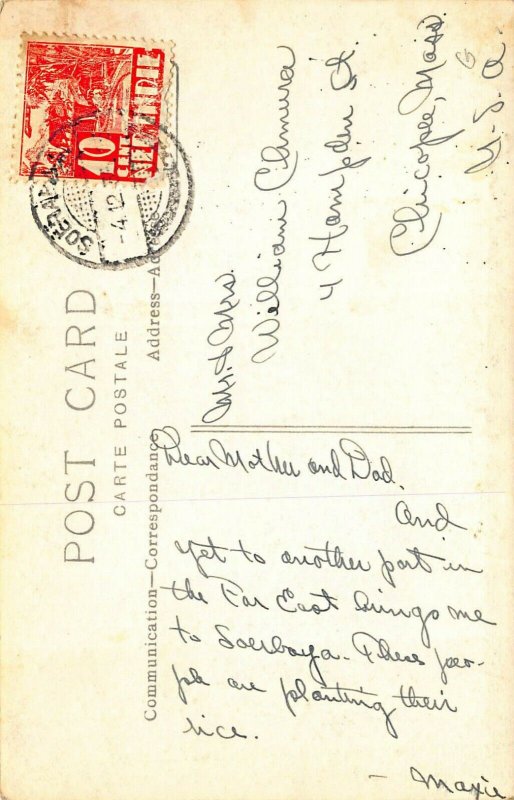 POST CARD
CARTE POSTALE
Communication—Correspondance
Address—Ad
10
CENT
NED. INDIE
SOERABAJA
-4.12.
Mr. & Mrs.
William Chmura
4 Hampden St.
Chicopee, Mass.
U.S.A.
Dear Mother and Dad.
And
yet to another port in
the Far East brings me
to Soerbaya. These peo-
ple are planting their
rice.
- Maxie